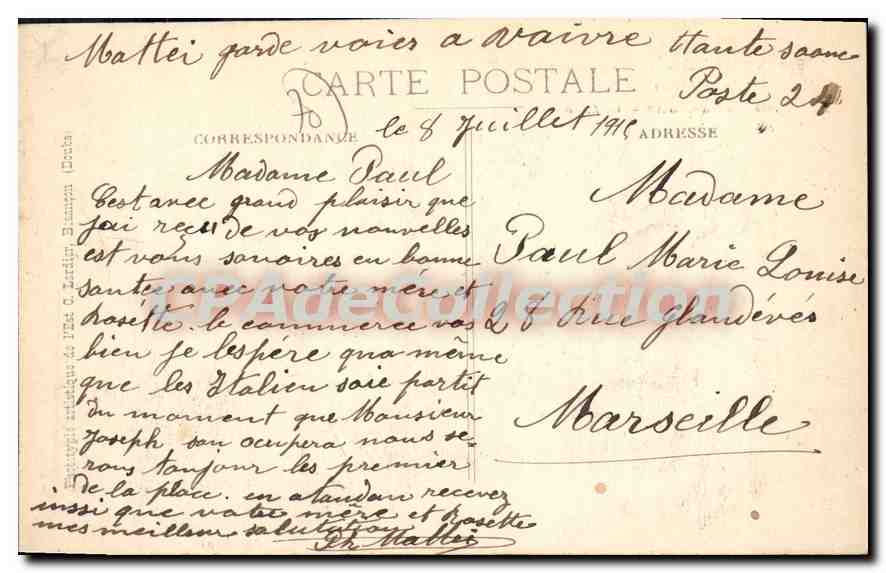 Mattei garde voies a Vaivre Haute Saone
Poste 24
CARTE POSTALE
70
le 8 Juillet 1915
CORRESPONDANCE
ADRESSE
Madame Paul
C'est avec grand plaisir que
j'ai reçu de vos nouvelles
est vous savoires en bonne
santer avec votre mére et
Rosétte. le commerce vas
bien je l'espére qua même
que les Italien soie partit
du moment que Monsieur
Joseph san ocupera nous se-
rons toujour les premier
de la place. en atandan recevez
inssi que votre mére et Rosette
mes meilleur salutation
Ph Mattei
Madame
Paul Marie Louise
28 Rue Glandévés
Marseille
Phototypie artistique de l'Est C. Lardier, Besançon (Doubs)
CPAdeCollection